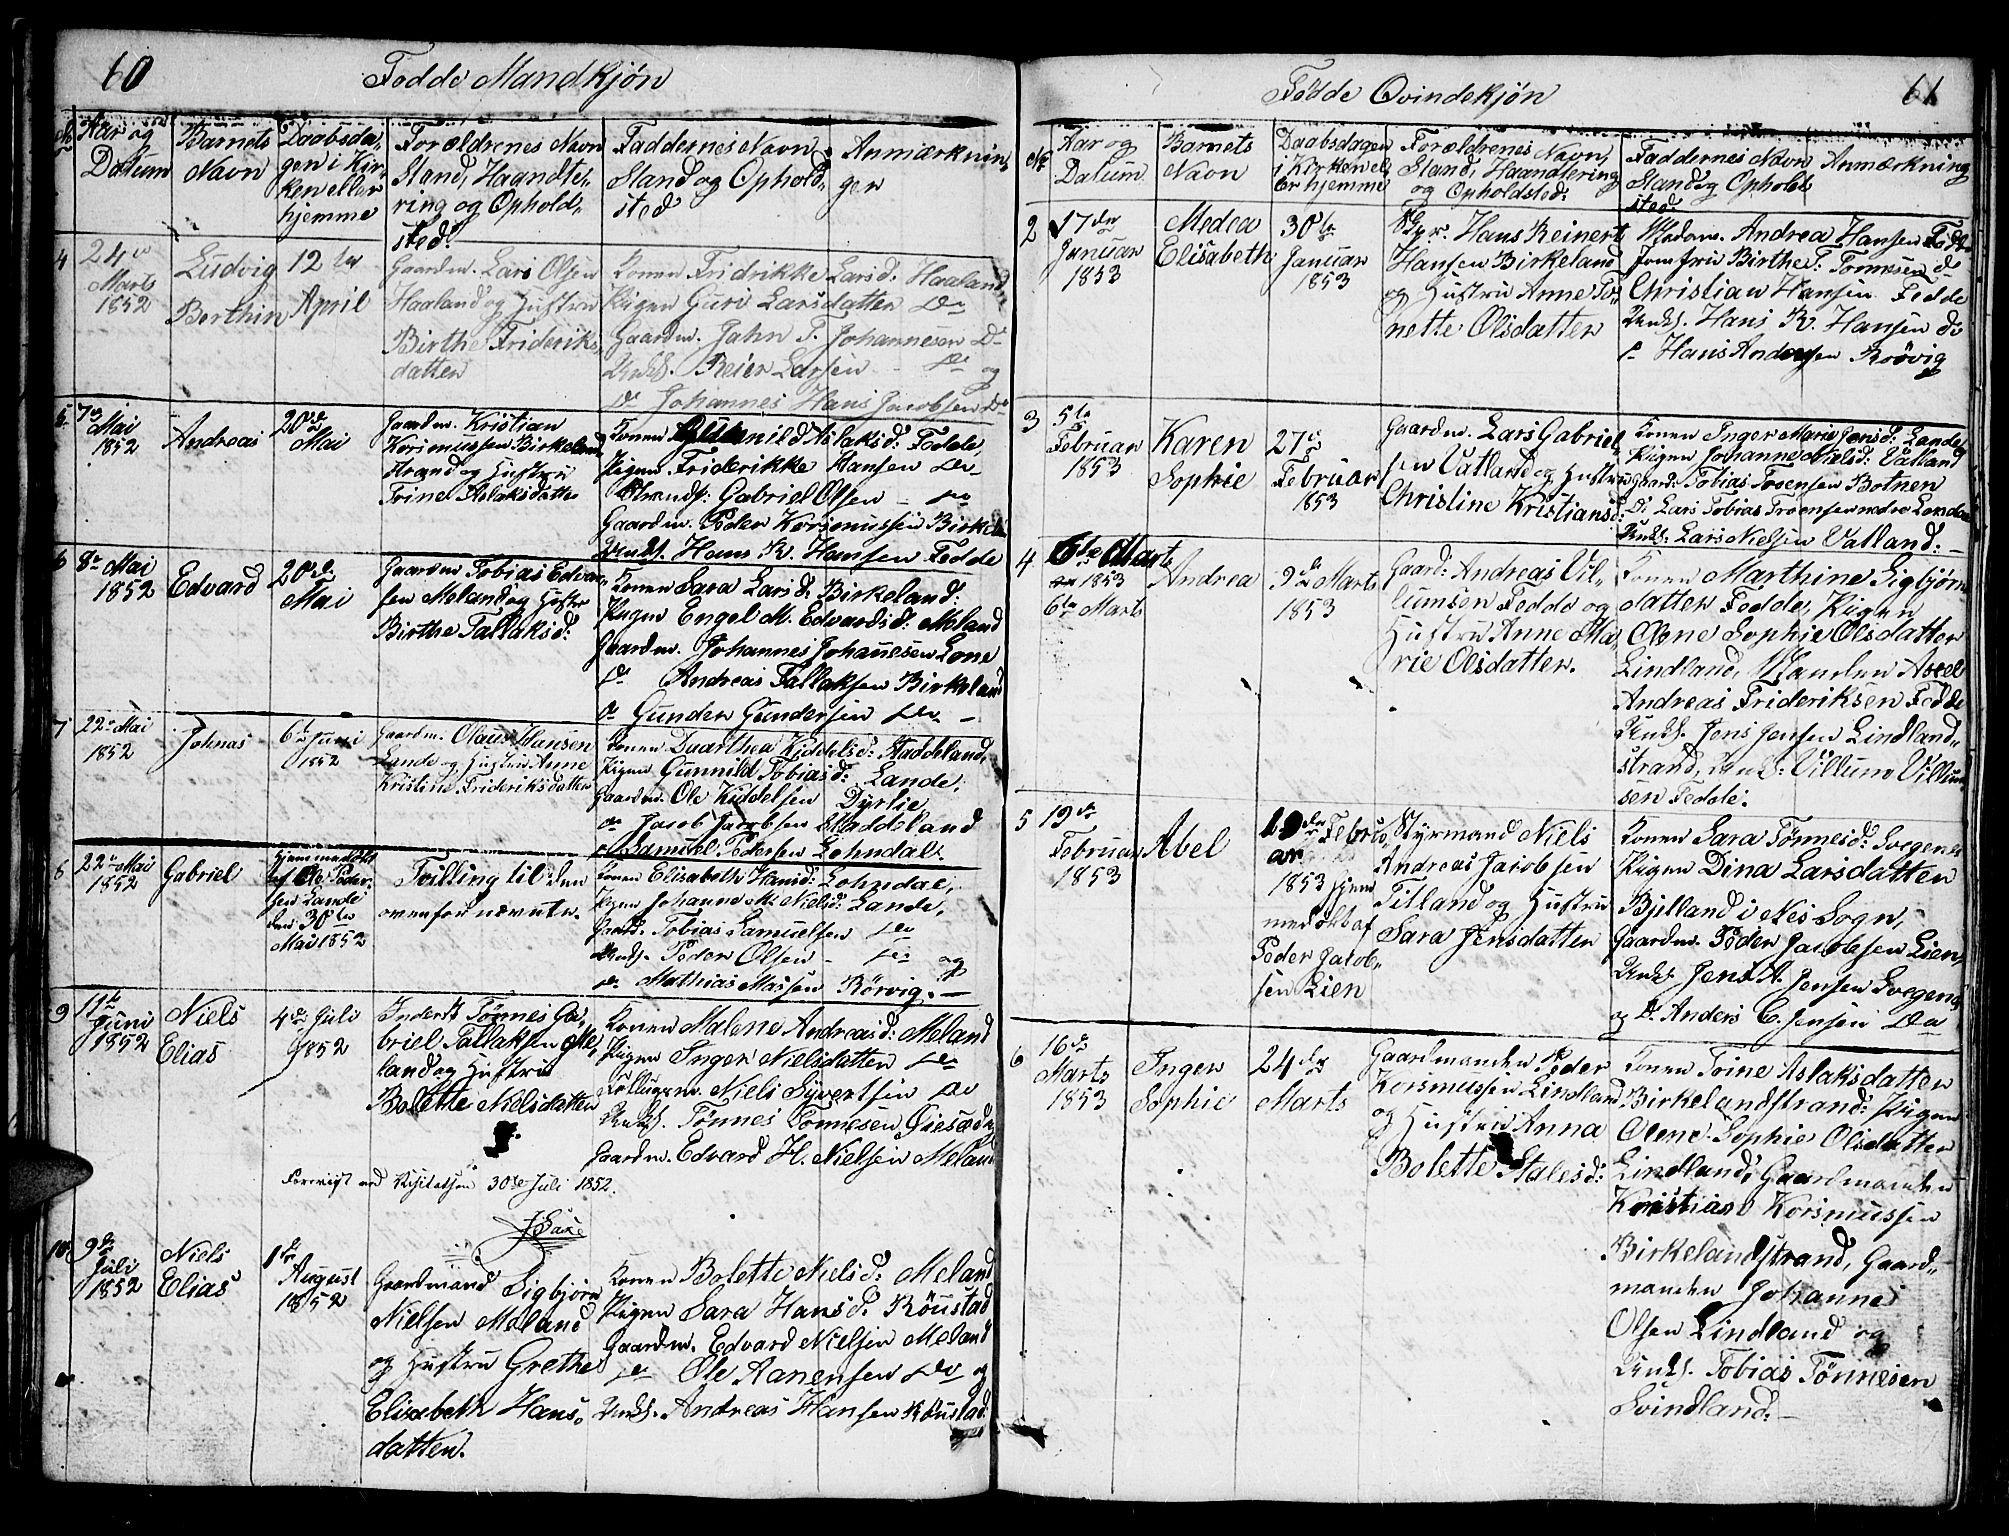 60
Fødde Mandkjøn
№
Aar og
Datum
Barnets
Navn
Daabsda-
gen i Kir-
ken eller
hjemme
Forældrenes Navn
Stand, Haandte-
ring og Ophold-
sted.
Faddernes Navn
Stand og Ophold-
sted
Anmærknin-
ger
4
24de
Marts
1852
Ludvig
Berthin
12te
April
Gaardm. Lars Olsen
Haaland og Hustru
Birthe Frideriks
datter
Konen Fridrikke Larsd. Haaland
Pigen Guri Larsdatter Do
Gaardm. Jahn T. Johannesen Do
Unkl. Reier Larsen - Do og
Do Johannes Hans Jacobsen Do
5
7de
Mai
1852
Andreas
20de
Mai
Gaardm. Kristian
Korsmussen Birkeland
strand og Hustru
Trine Aslaksdatter
Konen Gunnild Aslaksd: Fedde,
Pigen Friderikke Hansen Do
Strands: Gabriel Olsen - Do
Gaardm. Peder Korsmussen Birkela
Unkl. Hans R. Hansen Fedde
6
8de Mai
1852
Edvard
20de
Mai
Gaardm Tobias Edvar-
sen Meland og Hustr
Birthe Tallaksd:
Konen Sara Larsd. Birkeland:
Pigen Engel M. Edvardsd: Meland
Gaardm. Johannes Johanesen Lone
Do Andreas Tallaksen Birkeland
Do Gunder Gundersen Do -
7
22de Mai
1852
Johnas
6te Juni
1852
Gaardm. Olaus Hansen
Lande og Hustru Anne
Kristine Frideriksdatter
Konen Daarthea Kiddelsd: Staddeland,
Pigen Gunnild Tobiasd: Lande,
Gaardm. Ole Kiddelsen Dyrlie
Do Jacob Jacobsen Staddeland
Do Samuel Pedersen Lohndal.
8
22de Mai
1852
Gabriel
Hjemmedøbt
af Ole Peder-
sen Lande
den 30te
Mai 1852
Tvilling til den
ovenfor nævnte.
Konen Elisabeth Hansd: Lohndal,
Pigen Johanne M. Nielsd: Lande,
Gaard: Tobias Samuelsen Do
Unkl. Peder Olsen - Do og
Do Mathias Massen Rørvig. -
9
11te
Juni
1852
Niels
Elias
4de Juli
1852
Inderst Tønnes Ga-
briel Tallaksen Me-
land og Hustru
Bolette Nielsdatter
Konen Malene Andreasd: Meland
Pigen Inger Nielsdatter Do
Niels Syvertsen Do
Unkl. Tønnes Tønnesen Øiesæd
Gaardm. Edvard H. Nielsen Meland
Forevist ved Visitatsen 30te Juli 1852.
10
9de
Juli
1852
Niels
Elias
1de
August
1852
Gaardmand Sigbjørn
Nielsen Meland
og Hustru Grethe
Elisabeth Hans-
datter.
Konen Bolette Nielsd: Meland
Pigen Sara Hansd: Røustad
Gaardm. Edvard Nielsen Meland
Do Ole Aanensen Do og
Unkl. Andreas Hansen Røustad
Fødde Qvindekjøn
61
№
Aar og
Datum
Barnets
Navn
Daabsdagen
i Kirken el-
ler hjemme
Forældrenes Navn,
Stand, Haandtering
og Opholdsted.
Faddernes Navn
Stand og Ophold-
sted.
Anmærkning
2
17de
Januar
1853
Medea
Elisabeth
30te
Januar
1853
Hans Reinert
Hansen Birkeland
og Hustru Anne To-
nette Olsdatter
Madam. Andrea Hansen Fedde
Jomfru Birthe T. Tønnesen do
Christian Hansen Fedde
Unkl. Hans R. Hansen do
Do Hans Andersen Røøvig
3
5te
Februar
1853
Karen
Sophie
27de
Februar
1853
Gaardm. Lars Gabriel-
sen Vatland og Hustru
Christine Kristiansd:
Konen Inger Marie Jensd: Lande
Pigen Johanne Nielsd: Vatland
Gaard: Tobias Troensen Botnen
Do Lars Tobias Troensen nedre Lande
Unkl. Lars Nielsen Vatland: -
4
6te Marts
1853
6te Marts
Andrea
9de Marts
1853
Gaard: Andreas Vil-
lumsen Fedde og
Hustru Anne Ma-
rie Olsdatter.
Konen Marthine Sigbjørn
datter Fedde, Pigen
Olene Sophie Olsdatter
Lindland, Manden Axel
Andreas Frideriksen Fedde
Unkl. Jens Jensen Lindland-
strand, Unkl: Villum Villum
sen Fedde.
5
19de
Februar
1853
Abel
19de Febru-
ar
1853 hjem
medøbt af
Peder Jacob-
sen Lien
Styrmand Niels
Andreas Jacobsen
Titland og Hustru
Sara Jensdatter
Konen Sara Tønnesd: Svegenes
Pigen Dina Larsdatter
Bjelland i Nes Sogn,
Gaardm. Peder Jacobsen Lien,
Unkl Jens A. Jensen Svegenes
og Do Anders C. Jensen Do
6
16de
Marts
1853
Inger
Sophie
24de
Marts
Gaardmanden Peder
Korsmussen Lindland
og Hustru Anna
Bolette Stalesd:
Konen Trine Aslaksdatter
Birkelandstrand: Pigen
Olene Sophie Olsdatter
Lindland, Gaardmanden
Kristian Korsmussen
Birkelandstrand, Gaard-
manden Johannes
Olsen Lindland og
Unkl. Tobias Tønnesen
Svindland. -